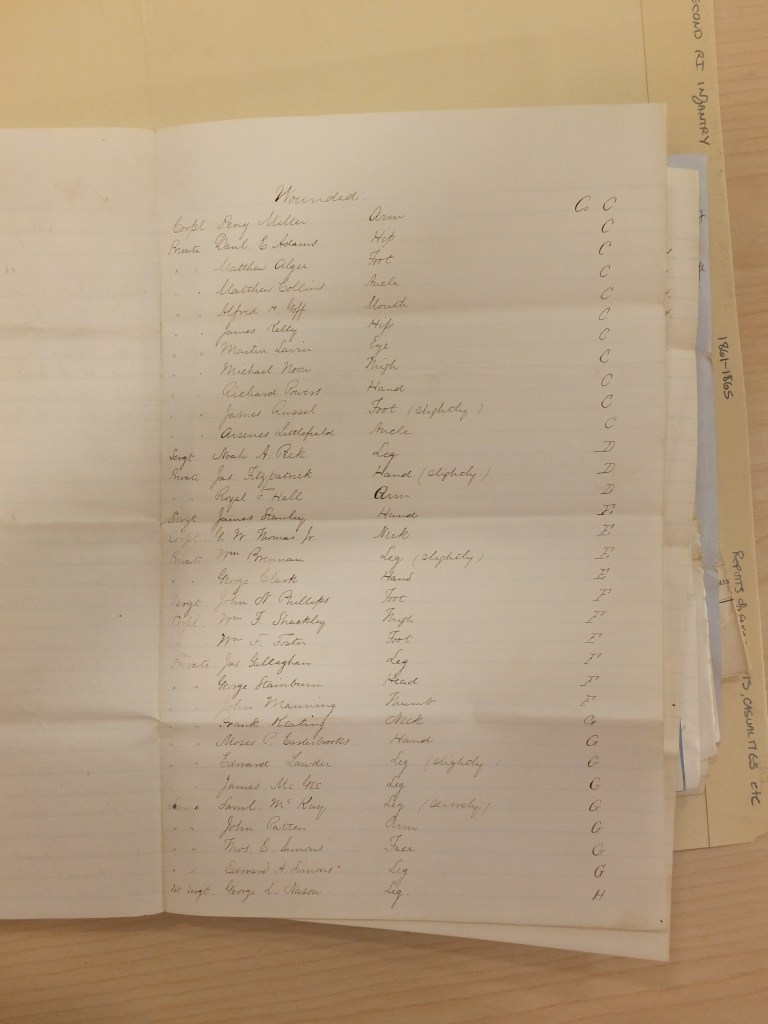 Wounded.
Corpl Percy Miller Arm Co C
Private Danl E Adams Hip C
" " Matthew Alger Foot C
" " Matthew Collins Ancle C
" " Alfred H. Goff Mouth C
" " James Kelly Hip C
" " Martin Lavin Eye C
" " Michael Noon Thigh C
" " Richard Powers Hand C
" " James Russel Foot (slightly) C
" " Arsenes Littlefield Ancle C
Sergt Noah A. Peck Leg D
Private Jas. Fitzpatrick Hand (slightly) D
" " Royal F. Hall Arm D
Sergt James Stanley Hand E
Corpl. G. W. Thomas Jr. Neck E
Private Wm Brennan Leg (slightly) E
" " George Clark Hand E
Sergt John N Phillips Foot F
Corpl. Wm F. Shackley Thigh F
" Wm F. Foster Foot F
Private Jas Gallaghan Leg F
" " George Stainburn Head F
" " John Manning Thumb F
" " Frank Keating Neck G
" " Moses P. Easterbrooks Hand G
" " Edward Lawder Leg (slightly) G
James Mc Gee Leg G
" Saml. Mc Kay Leg (severely) G
" " John Patten Arm G
" " Thos. E. Simons Face G
" " Edward A. Simons Leg G
Sergt. George L. Nason Leg. H
SECOND RI INFANTRY
1861-1865
Reports of
, CASUALTIES etc